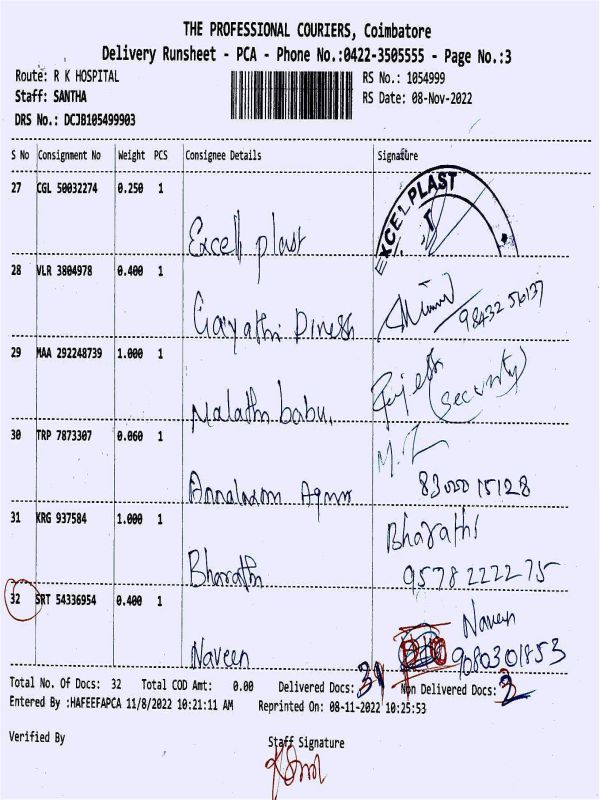 THE PROFESSIONAL COURIERS, Coimbatore
Delivery Runsheet - PCA - Phone No.:0422-3505555 - Page No.:3
Route: R K HOSPITAL RS No.: 1054999
Staff: SANTHA RS Date: 08-Nov-2022
DRS No.: DCJB105499903
S No Consignment No Weight PCS Consignee Details Signature
27 CGL 50032274 0.250 1
EXCEL PLAST
Excell plast
28 VLR 3804978 0.400 1
Gayathri Dinesh 98432 56137
29 MAA 292248739 1.000 1
Malathi babu. Rajesh (security)
30 TRP 7873307 0.060 1
83000 15128
31 KRG 937584 1.000 1
Bharathi
Bharathi 9578222275
32 SRT 54336954 0.400 1
Naveen
Naveen 9080301853
Total No. Of Docs: 32 Total COD Amt: 0.00 Delivered Docs: Non Delivered Docs:
Entered By :HAFEEFAPCA 11/8/2022 10:21:11 AM Reprinted On: 08-11-2022 10:25:53
Verified By Staff Signature